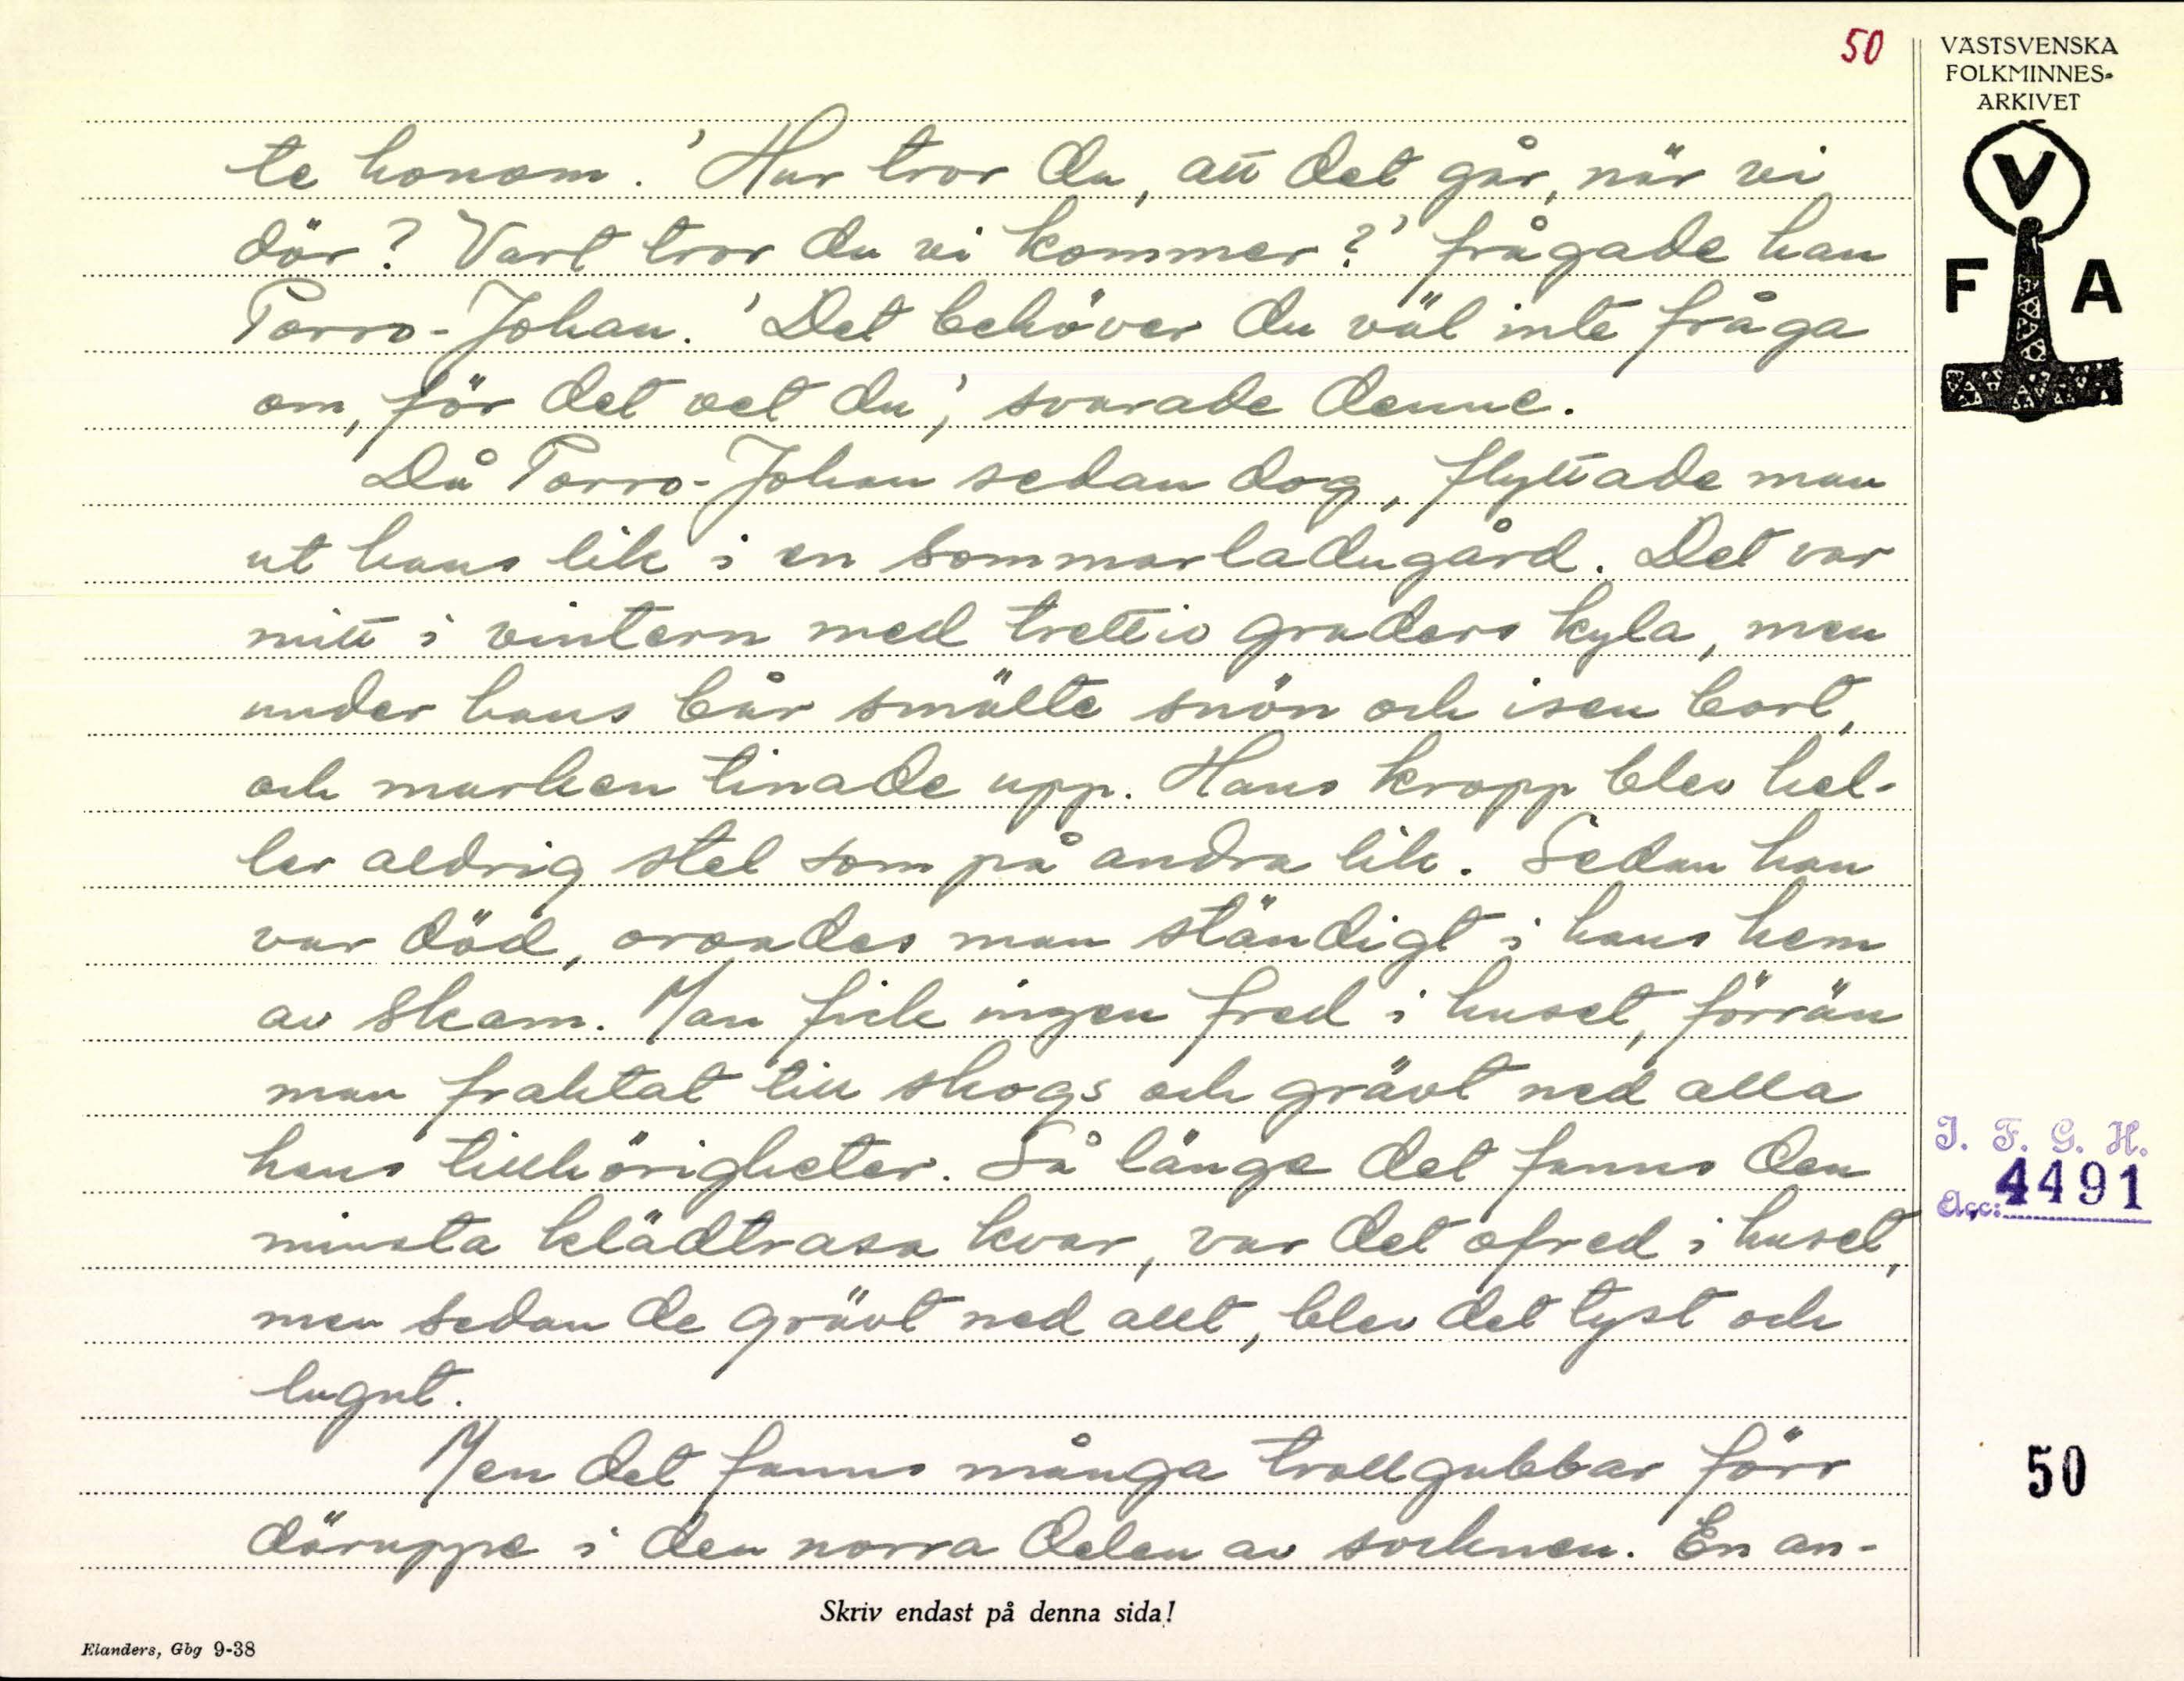 50
VÄSTSVENSKA
FOLKMINNES-
ARKIVET
V
F A
te honom. 'Hur tror du, att det går, när vi
dör? Vart tror du vi kommer?' frågade han
Porro-Johan. 'Det behöver du väl inte fråga
om, för det vet du', svarade denne.
Då Porro-Johan sedan dog, flyttade man
ut hans lik i en sommarladugård. Det var
mitt i vintern med trettio graders kyla, men
under hans bår smälte snön och isen bort,
och marken tinade upp. Hans kropp blev hel-
ler aldrig stel som på andra lik. Sedan han
var död, oroades man ständigt i hans hem
av skam. Man fick ingen fred i huset, förrän
man fraktat till skogs och grävt ned alla
hans tillhörigheter. Så länge det fanns den
minsta klädtrasa kvar, var det ofred i huset,
men sedan de grävt ned allt, blev det tyst och
lugnt.
Men det fanns många trollgubbar förr
däruppe i den norra delen av socknen. En an-
I. F. G. H.
Acc: 4491
50
Skriv endast på denna sida!
Elanders, Gbg 9-38